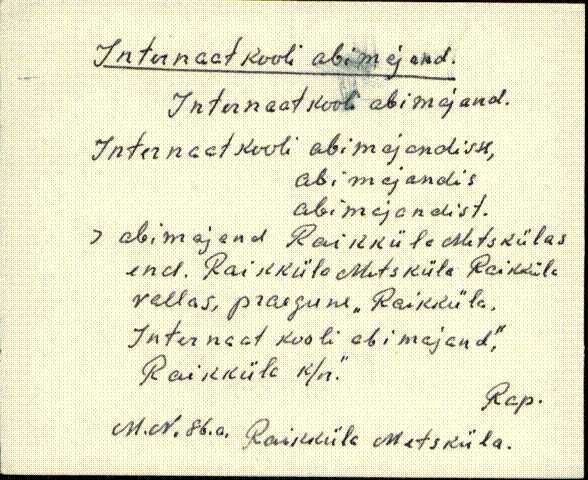 Internaatkooli abimajand.
Internaatkooli abimajand.
Internaatkooli abimajandisse,
abimajandis
abimajandist.
> abimajand Raikküla Metskülas
end. Raikküla Metsküla Raikküla
vallas, praegune „Raikküla
Internaatkooli abimajand",
Raikküla k/n."
Rap.
M.N. 86.a. Raikküla Metsküla.